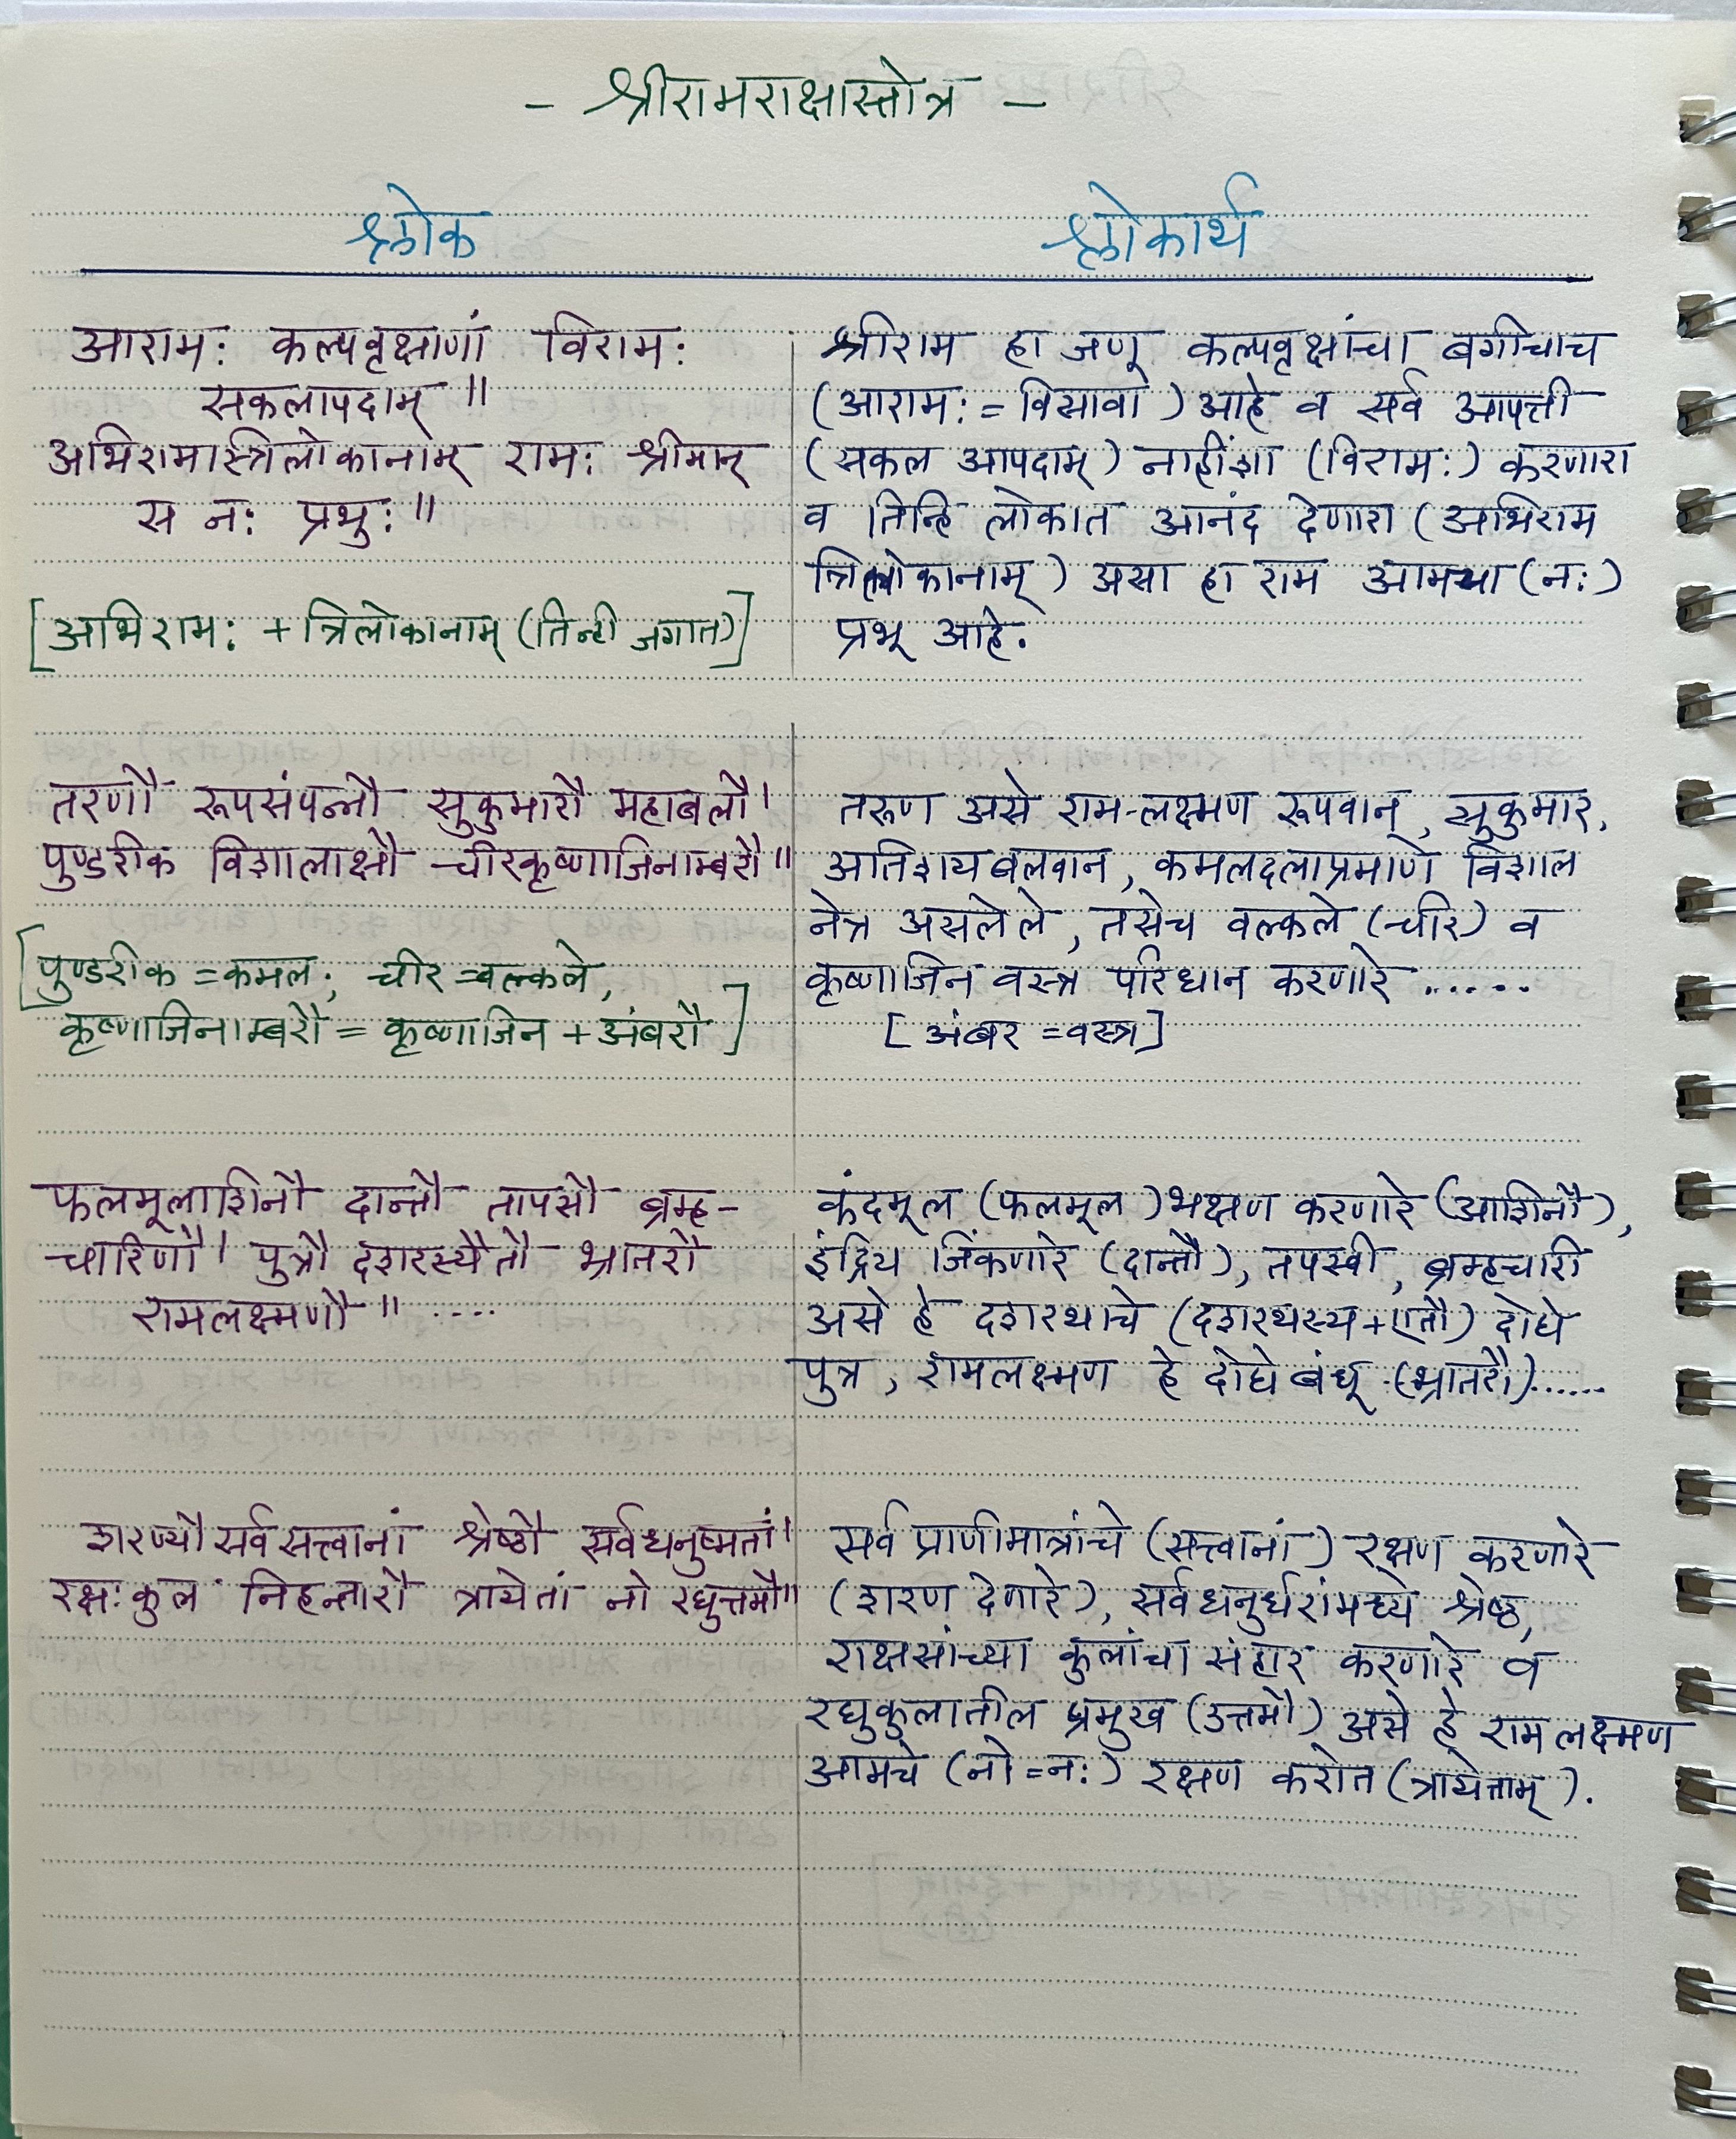 - श्रीरामराक्षास्तोत्र -
श्लोक
श्लोकार्थ
आराम: कल्पवृक्षाणां विराम:
सकलापदाम् ॥
अभिरामास्त्रिलोकानाम् राम: श्रीमान्
स न: प्रभु: ॥
[अभिराम: + त्रिलोकानाम् (तिन्ही जगात)]
श्रीराम हा जणू कल्पवृक्षांचा बगीचाच
(आराम: = विसावा) आहे व सर्व आपत्ती
(सकल आपदाम्) नाहींशा (विराम:) करणारा
व तिन्हि लोकात आनंद देणारा (अभिराम
त्रिलोकानाम्) असा हा राम आमचा (न:)
प्रभू आहे.
तरणौ रूपसंपन्नौ सुकुमारौ महाबलौ।
पुण्डरीक विशालाक्षौ चीरकृष्णाजिनाम्बरौ ॥
[पुण्डरीक = कमल; चीर = वल्कले,
कृष्णाजिनाम्बरौ = कृष्णाजिन + अंबरौ]
तरुण असे राम-लक्ष्मण रूपवान्, सुकुमार,
अतिशय बलवान, कमलदलाप्रमाणे विशाल
नेत्र असलेले, तसेच वल्कले (चीर) व
कृष्णाजिन वस्त्र परिधान करणारे ......
[अंबर = वस्त्र]
फलमूलाशिनौ दान्तौ तापसौ ब्रम्ह-
चारिणौ। पुत्रौ दशरस्यैतौ भ्रातरौ
रामलक्ष्मणौ ॥ ....
कंदमूल (फलमूल) भक्षण करणारे (आशिनौ),
इंद्रिय जिंकणारे (दान्तौ), तपस्वी, ब्रम्हचारी
असे हे दशरथाचे (दशरथस्य+एतौ) दोघे
पुत्र, रामलक्ष्मण हे दोघे बंधू (भ्रातरौ)......
शरण्यौ सर्व सत्त्वानां श्रेष्ठौ सर्वधनुष्मतां।
रक्ष:कुल निहन्तारौ त्रायेतां नो रघुत्तमौ॥
सर्व प्राणीमात्रांचे (सत्त्वानां) रक्षण करणारे
(शरण देणारे), सर्व धनुर्धरांमध्ये श्रेष्ठ,
राक्षसांच्या कुलांचा संहार करणारे व
रघुकुलातील प्रमुख (उत्तमौ) असे हे राम लक्ष्मण
आमचे (नो = न:) रक्षण करोत (त्रायेताम्).